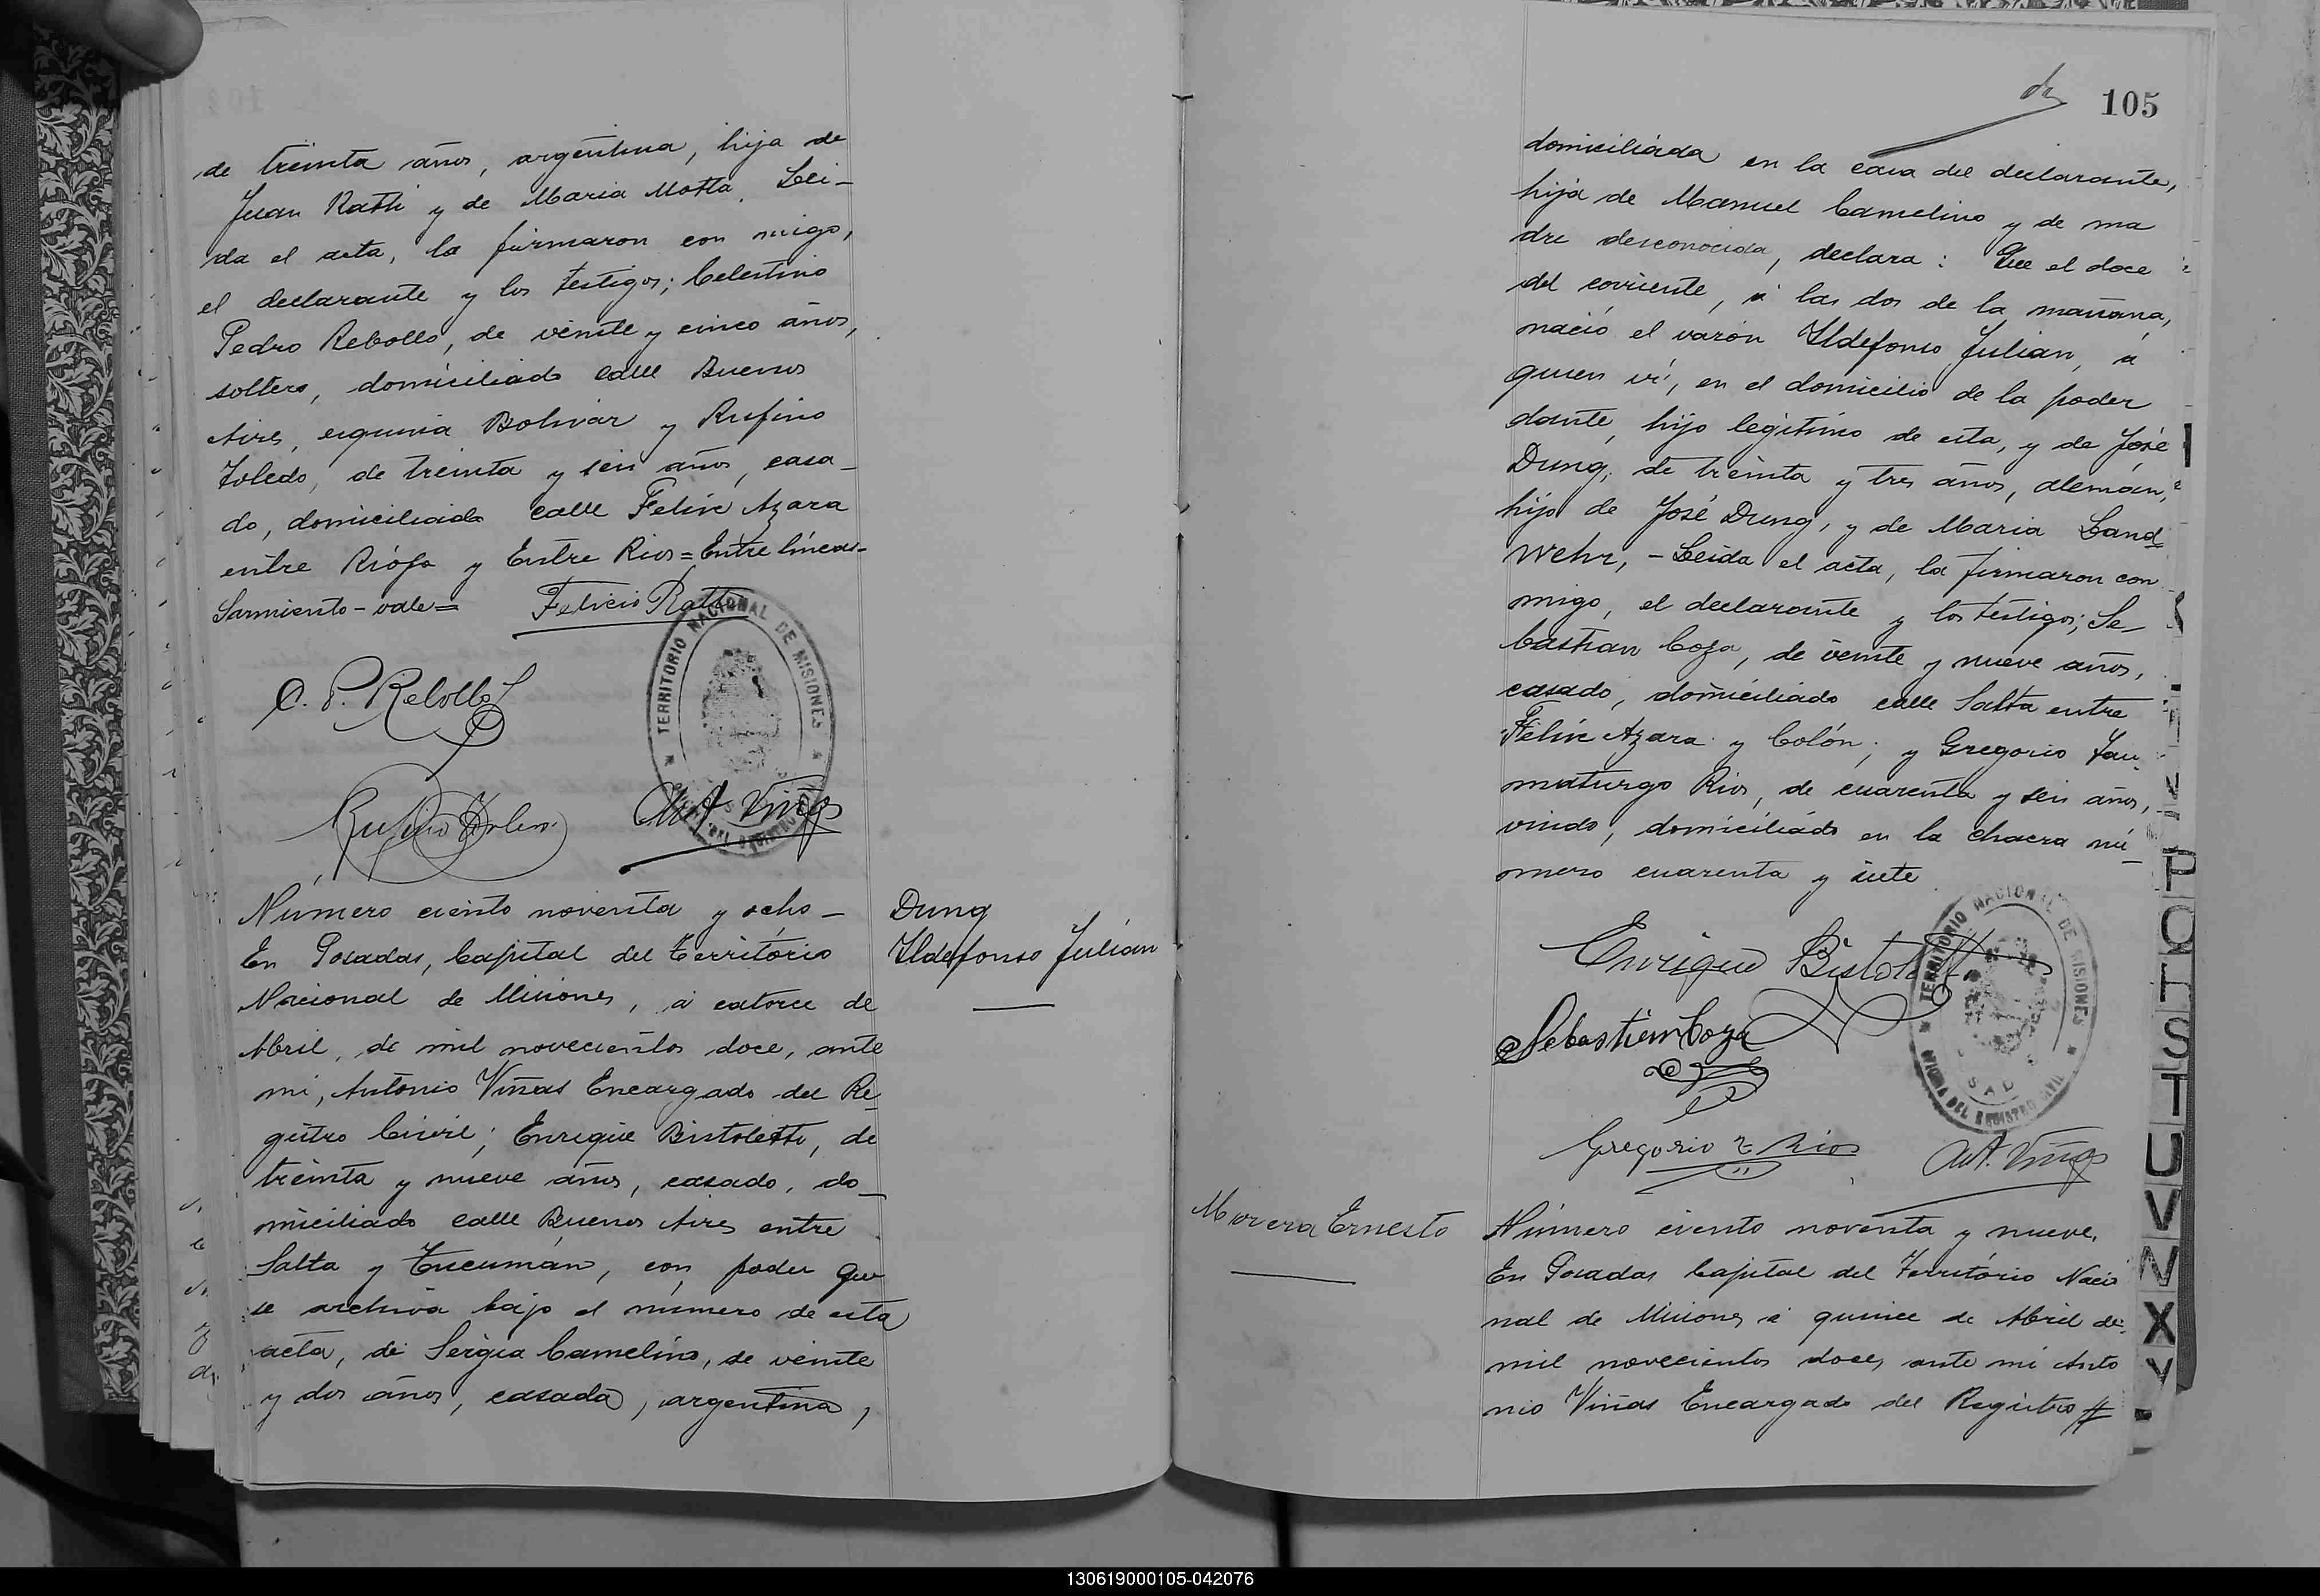 de treinta años, argentina, hija de
Juan Ratti y de Maria Motta. Lei-
da el acta, la firmaron con migo,
el declarante y los testigos; Celestino
Pedro Rebollo, de veinte y cinco años,
soltero, domiciliado calle Buenos
Aires, esquina Bolivar y Rufino
Toledo, de treinta y seis años, casa-
do, domiciliado calle Felix Azara
entre Rioja y Entre Rios = Entre lineas-
Sarmiento - vale =
Felicio Ratti
TERRITORIO NACIONAL DE MISIONES
C. P. Rebollo
Rufino Toledo
Ant. Viñas
Número ciento noventa y ocho -
En Posadas, Capital del Territorio
Nacional de Misiones, á catorce de
Abril, de mil novecientos doce, ante
mi, Antonio Viñas Encargado del Re-
gistro Civil; Enrique Bistoletti, de
treinta y nueve años, casado, do-
miciliado calle Buenos Aires entre
Salta y Tucumán, con poder que
se archiva bajo el número de esta
acta, de Sergia Camelino, de veinte
y dos años, casada, argentina,
Dung
Ildefonso Julián
105
domiciliada en la casa del declarante,
hija de Manuel Camelino y de ma
dre desconocida, declara: Que el doce
del corriente, á las dos de la mañana,
nació el varón Ildefonso Julian, á
quien ví, en el domicilio de la poder
dante, hijo legítimo de esta, y de José
Dung, de treinta y tres años, alemán,
hijo de José Dung, y de Maria Land=
Wehr, - Leida el acta, la firmaron con
migo, el declarante y los testigos; Se-
bastian Coza, de veinte y nueve años,
casado, domiciliado calle Salta entre
Felix Azara y Colón; y Gregorio Tau-
maturgo Rios, de cuarenta y seis años,
viudo, domiciliado en la chacra nú-
mero cuarenta y siete
Enrique Bistoletti
TERRITORIO NACIONAL DE MISIONES
OFICINA DEL REGISTRO CIVIL
Sebastian Coza
Gregorio T Rios
Ant. Viñas
Morera Ernesto
Número ciento noventa y nueve.
En Posadas Capital del Territorio Nacio
nal de Misiones á quince de Abril de
mil novecientos doce, ante mi Anto
nio Viñas Encargado del Registro #
P
Q
S
T
U
V
X
Y
130619000105-042076